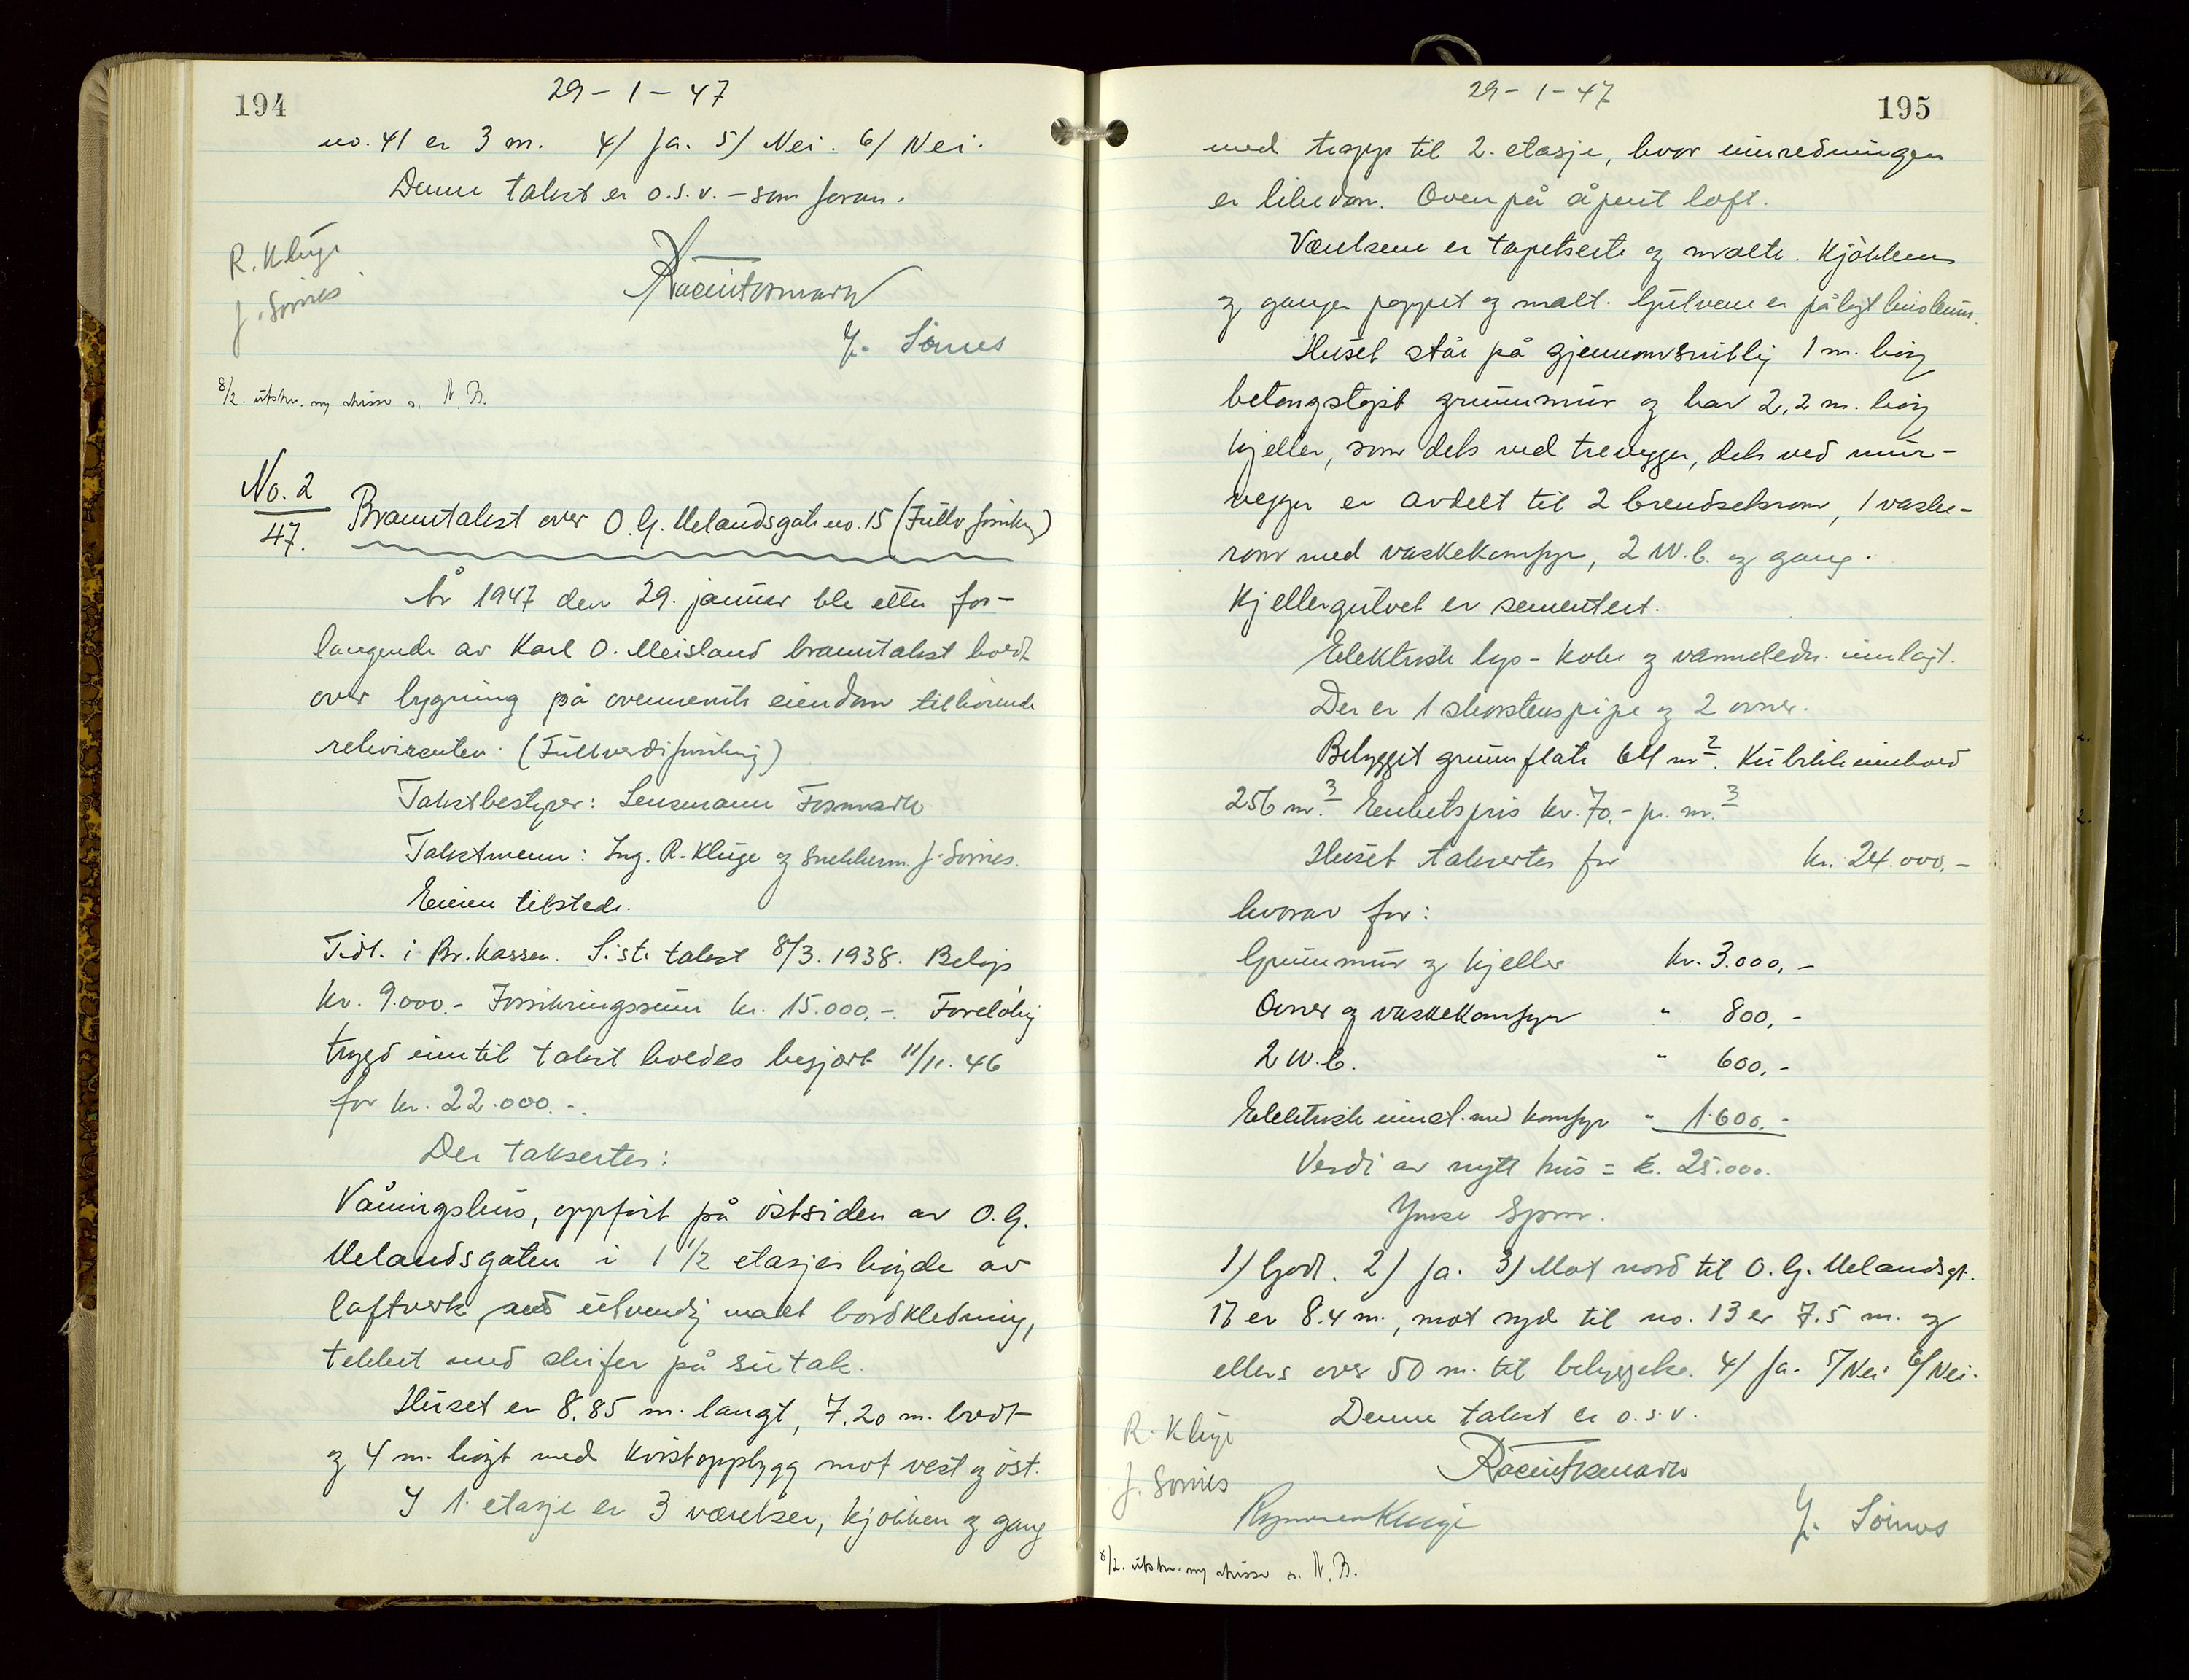 194
29 - 1 - 47
no. 41 er 3 m. 4/ Ja. 5/ Nei. 6/ Nei.
Denne takst er o.s.v. - som foran.
R. Kluge
J. Sømes
J. Sømes
8/2. utskr. og skisse s. N. B.
No. 2
47.
Branntakst over O. G. Melandsgate no. 15 (Fullv forsikring)
År 1947 den 29. januar ble etter for-
langende av Karl O. Meisland branntakst holdt
over bygning på ovennevnte eiendom tilhørende
rekvirenten. (Fullverdiforsikring)
Takstbestyrer: Lensmann Fosmark
Takstmenn: Ing. R. Kluge og snekkerm. J. Sømes.
Eieren tilstede.
Tidl. i Br. kassen. Siste takst 8/3. 1938. Beløp
kr. 9.000.- Forsikringssum kr. 15.000.-. Foreløbig
trygd inntil takst holdes begjært 11/11. 46
for kr. 22.000.-.
Der taksertes:
Våningshus, oppført på østsiden av O. G.
Melandsgaten i 1 1/2 etasjes høyde av
laftverk med utvendig malt bordkledning,
tekket med skifer på sutak.
Huset er 8,85 m. langt, 7,20 m. bredt
og 4 m. høyt med kvistoppbygg mot vest og øst.
I 1. etasje er 3 værelser, kjøkken og gang
195
29 - 1 - 47
med trapp til 2. etasje, hvor innredningen
er likedan. Ovenpå åpent loft.
Værelsene er tapetserte og malte. Kjøkken
og ganger pappet og malt. Gulvene er pålagt linoleum.
Huset står på gjennomsnitlig 1 m. høy
betongstøpt grunnmur og har 2,2 m. høy
kjeller, som dels ved trevegger, dels ved mur-
vegger er avdelt til 2 brendselsrom, 1 vaske-
rom med vaskekomfyr, 2 W.C. og gang.
Kjellergulvet er sementert.
Elektrisk lys- koke og varmeledn. innlagt.
Der er 1 skorstenspipe og 2 ovner.
Bebygget grunnflate 64 m². Kubikkinnhold
256 m.³ Enhetspris kr. 70.- pr. m.³
Huset taksertes for kr. 24.000,-
hvorav for:
Grunnmur og kjeller kr. 3.000,-
Ovner og vaskekomfyr " 800,-
2 W.C. " 600,-
Elektrisk innst. med komfyr " 1.600,-
Verdi av nytt hus = k. 25.000.
Ymse Spm.
1) Godt. 2) Ja. 3) Mot nord til O. G. Melandsgt.
17 er 8.4 m., mot syd til no. 13 er 7.5 m. og
ellers over 50 m. til bebyggelse. 4/ Ja. 5/ Nei 6/ Nei.
Denne takst er o.s.v.
R. Kluge
J. Sømes
J. Sømes
8/2. utskr. og skisse s. N. B.